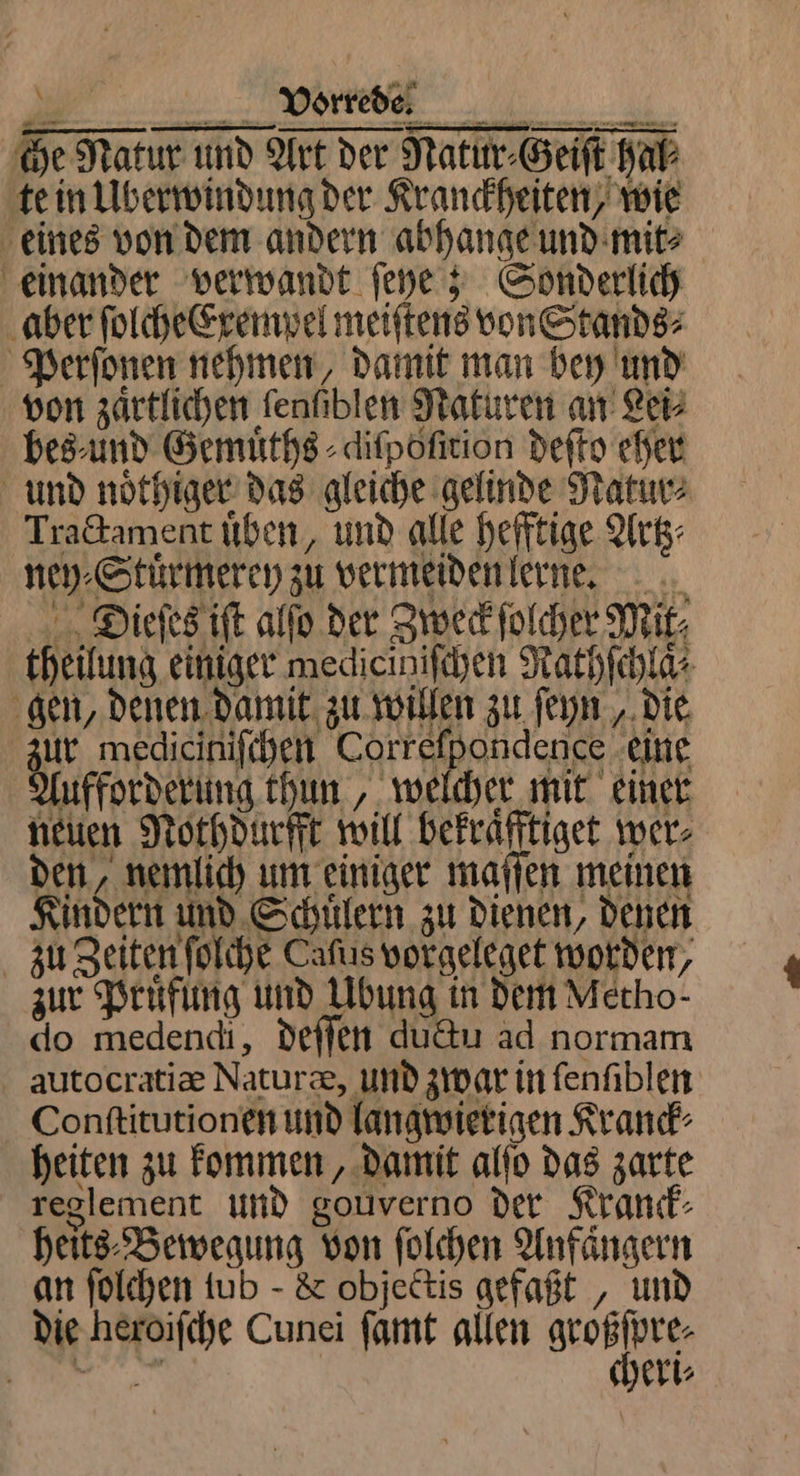 Vorrede.
che Natur und Art der Natur-Geiſt hal-
te in Uberwindung der Kranckheiten, wie
eines von dem andern abhange und mit-
einander verwandt ſeye; Sonderlich
aber ſolche Exempel meiſtens von Stands-
Perſonen nehmen, damit man bey und
von zaͤrtlichen ſenſiblen Naturen an Lei-
bes-und Gemuͤths-diſpoſition deſto eher
und noͤthiger das gleiche gelinde Natur-
Tractament uͤben, und alle hefftige Artz-
ney-Stuͤrmerey zu vermeiden lerne.
Dieſes iſt alſo der Zweck ſolcher Mit-
theilung einiger mediciniſchen Rathſchlaͤ-
gen, denen damit zu willen zu ſeyn, die
zur mediciniſchen Correſpondence eine
Aufforderung thun, welcher mit einer
neuen Nothdurfft will bekraͤfftiget wer-
den, nemlich um einiger maſſen meinen
Kindern und Schuͤlern zu dienen, denen
zu Zeiten ſolche Caſus vorgeleget worden,
zur Pruͤfung und Ubung in dem Metho-
do medendi, deſſen ductu ad normam
autocratiæ Naturæ, und zwar in ſenſiblen
Conſtitutionen und langwierigen Kranck-
heiten zu kommen, damit alſo das zarte
reglement und gouverno der Kranck-
heits-Bewegung von ſolchen Anfaͤngern
an ſolchen ſub - & objectis gefaßt, und
die heroiſche Cunei ſamt allen großſpre-
cheri-